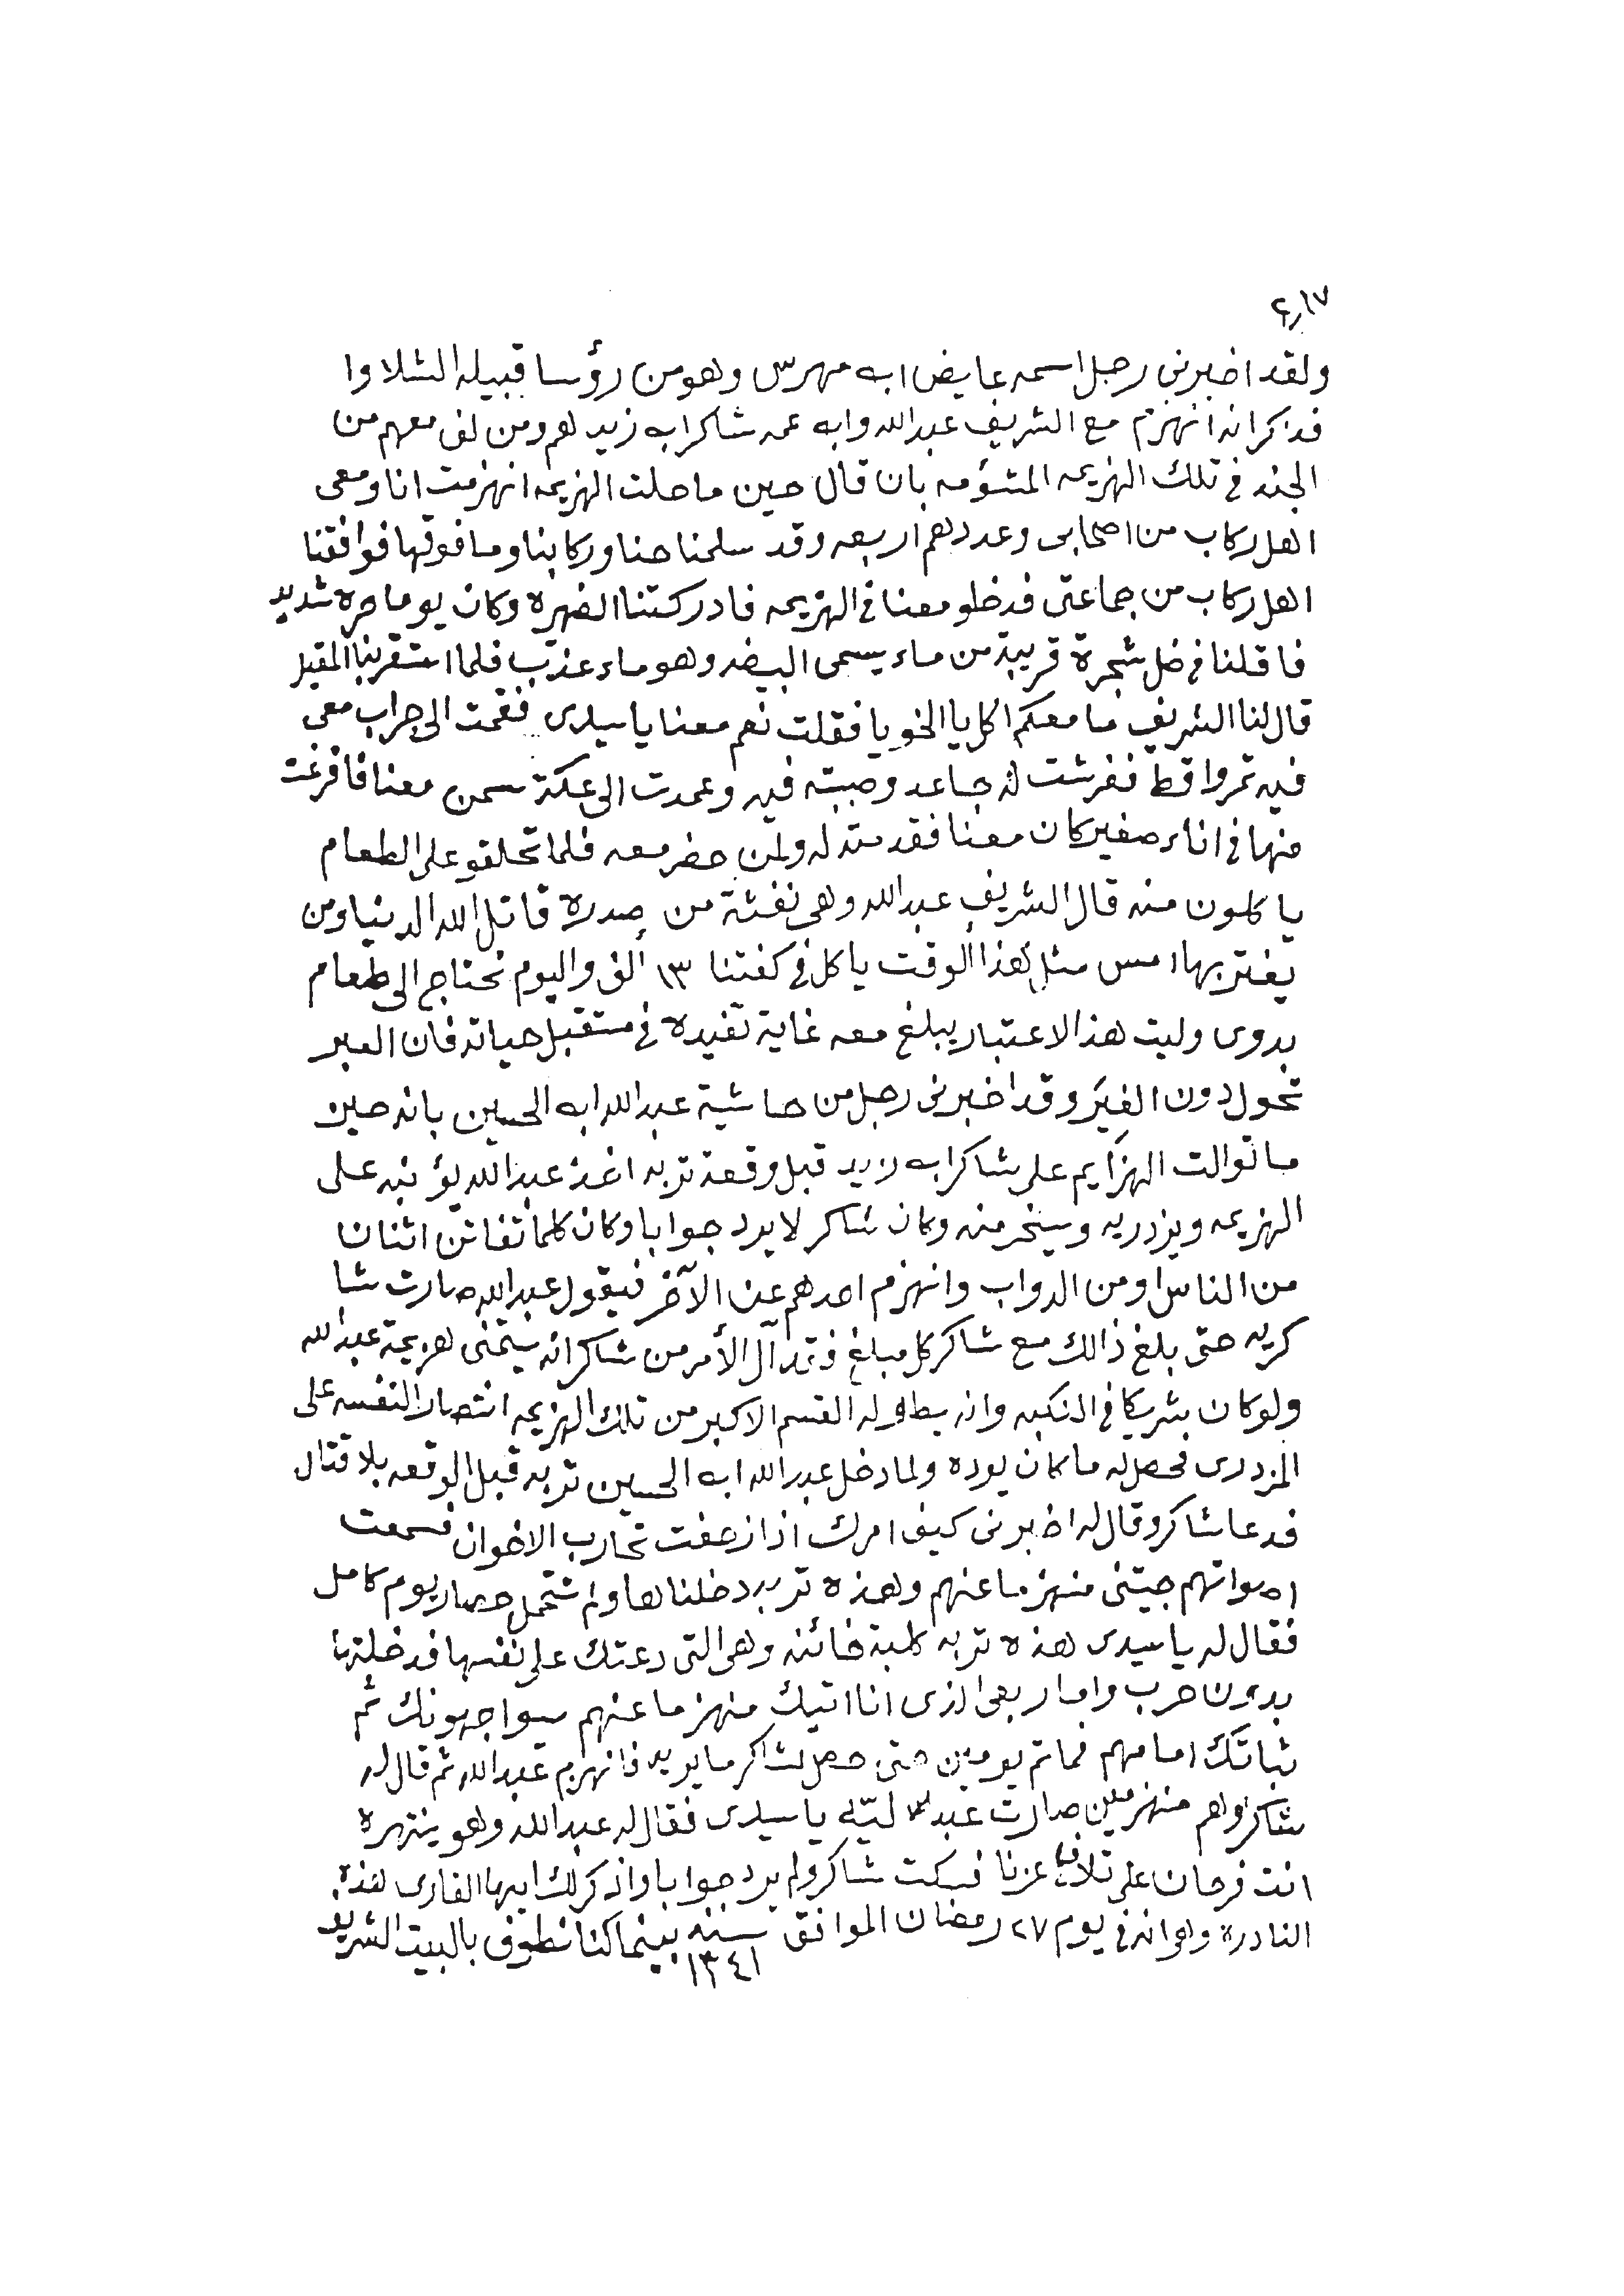 ٢١٧
ولقد اخبرني رجل اسمه عايض ابن مهرس وهو من رؤسا قبيلة الشلاوا
فذكر انه انهزم مع الشريف عبدالله وابن عمه شاكر ابن زيد هم ومن لف معهم من
الجند في تلك الهزيمه المشؤمه بان قال حين ما حلت الهزيمه انهزمت انا ومعي
اهل ركاب من اصحابي وعددهم اربعه وقد سلمنا حنا وركابنا وما فوقها فوافقنا
اهل ركاب من جماعتي فدخلو معنا في الهزيمه فادركتنا الضهرة وكان يوما حره شديد
فاقلنا في ضل شجرة قريبة من ماء يسمى البيضه وهو ماء عذب فلما استقر بنا المقيل
قال لنا الشريف ما معكم اكل يا الخويا فقلت نعم معنا يا سيدي فقمت الى جراب معي
فيه تمر واقط ففرشت له جاعد وصبيته فيه وعمدت الى عكة سمن معنا فافرغت
منها في اناء صغير كان معنا فقدمته له ولمن حضر معه فلما تحلقو على الطعام
ياكلون منه قال الشريف عبدالله وهي نفثة من صدره قاتل الله الدنيا ومن
يغتر بها امس مثل هذا الوقت ياكل في كفتنا ١٣ ألف واليوم نحتاج الى طعام
بدوي وليت هذا الاعتبار يبلغ معه غاية تفيده في مستقبل حياته فان العبر
تحول دون الغير وقد اخبرني رجل من حاشية عبدالله ابن الحسين بانه حين
ما توالت الهزايم على شاكر ابن زيد قبل وقعة تربه اخذ عبدالله يؤنبه على
الهزيمه ويزدريه ويسخر منه وكان شاكر لا يرد جوابا وكان كلما تفاتن اثنان
من الناس او من الدواب وانهزم احدهم عن الآخر فيقول عبدالله صارت شا
كريه حتى بلغ ذالك مع شاكر كل مبلغ وقد آل الأمر من شاكر انه يتمنى هزيمة عبدالله
ولو كان شريكا في النكبه وانه يطاوله القسم الاكبر من تلك الهزيمه انتصارا لنفسه على
المزدري فحصل له ما كان يوده ولما دخل عبدالله ابن الحسين تربه قبل الوقعه بلا قتال
فدعا شاكر وقال له اخبرني كيف امرك اذا زحفت تحارب الاخوان فسمعت
اصواتهم جيتني منهزما عنهم وهذه تربه دخلناها ولم تتحمل حصار يوم كامل
فقال له يا سيدي هذه تربه كلبة خائنه وهي التي دعتك على نفسها فدخلتها
بدون حرب واما ربعي الذي انا اتيك منهزما عنهم سيواجهونك ثم
ثباتك امامهم فما تم يومين حتى حصل لشاكر ما يريد فانهزم عبدالله ثم قال له
شاكر وهم منهزمين صارت عبدلليّه يا سيدي فقال له عبدالله وهو ينتهره
انت فرحان على تلاف عزنا فسكت شاكر ولم يرد جوابا واذكر لك ايها القارى هذه
النادرة وهو انه في يوم ٢٧ رمضان الموافق سنة ١٣٤١ بينما كنا نطوف بالبيت الشريف